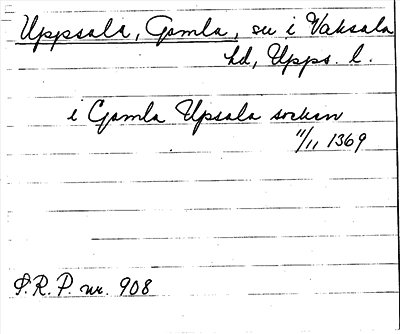 Uppsala, Gamla, sn i Vaksala
hd, Upps. l.
i Gamla Upsala socken
11/11 1369
S.R.P. nr. 908